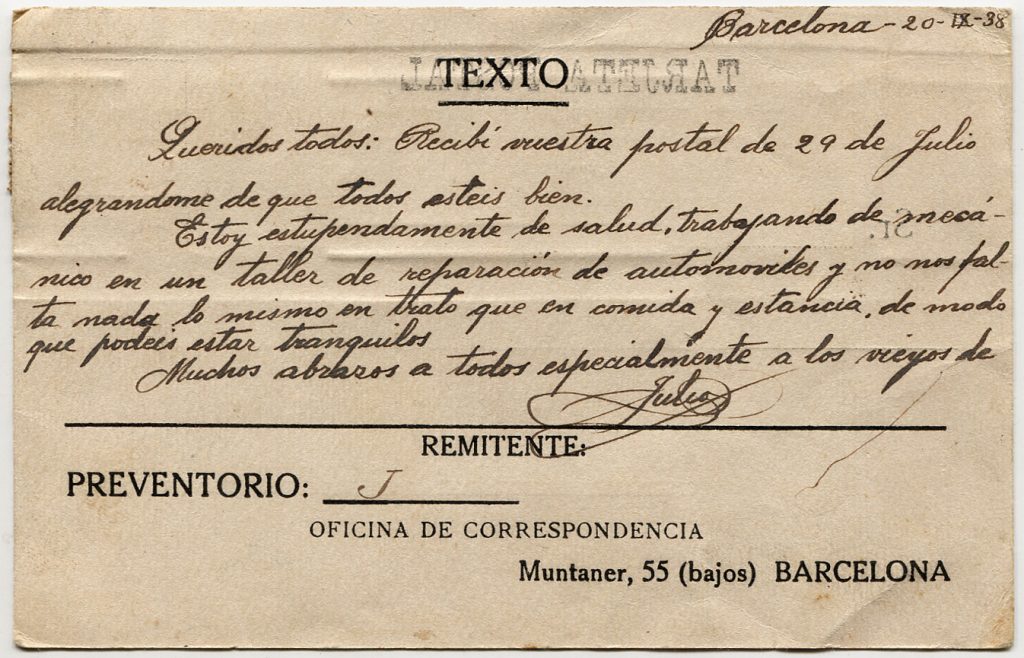 Barcelona - 20-IX-38
TEXTO
TARJETA POSTAL
Queridos todos: Recibí vuestra postal de 29 de Julio
alegrandome de que todos esteis bien.
Estoy estupendamente de salud, trabajando de mecá-
Sr.
nico en un taller de reparación de automoviles y no nos fal-
ta nada lo mismo en trato que en comida y estancia, de modo
que podeis estar tranquilos
Muchos abrazos a todos especialmente a los vieyos de
Julio
REMITENTE:
PREVENTORIO: J
OFICINA DE CORRESPONDENCIA
Muntaner, 55 (bajos) BARCELONA